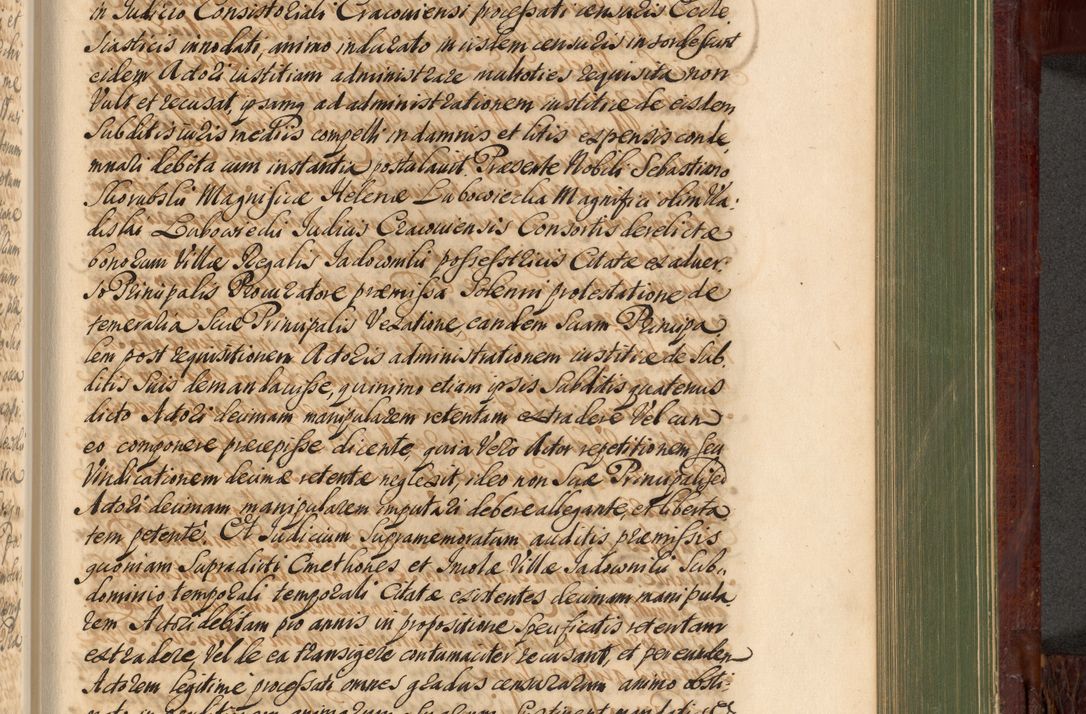 in Judicio Consistoriali Cracoviensi processati censuris Eccle
siasticis innodati, animo indurato in iisdem censuris insordescunt
eidem Actori iustitiam administrare multoties requisita non
Vult et recusat, ipsamq ad administrationem iustitiae de eisdem
Subditis iuris mediis compelli in damnis et litis expensis conde,
mnari debita cum instantia postulavit. Praesente Nobili Sebastiano
Skorubski Magnificae Helenae Labowiecka Magnifici olim Vla,
dislai Labowiecki Judicis Cracoviensis Consortis derelictae
bonorum Villae Regalis Jadowniki possessricis Citatae ex adver,
so Principalis Procuratore praemissa Solenni protestatione de
temeraria Suae Principalis Vexatione, eandem Suam Principa
lem post requisitionem Actoris administrationem iustitiae de Sub,
ditis Suis demandavisse, quinimo etiam ipsis Subditis quatenus
dicto Actori decimam manipularem retentam extradere Vel cum
eo componere praecepisse dicente, quia Vero Actor repetitionem seu
Vindicationem decimae retentae neglexit, ideo non Suae Principali sed
Actori decimam manipularem imputari debere allegante, et liberta
tem petente. Et Judicium Supramemoratum auditis praemissis
quoniam Supradicti Cmethones et Incolae Villae Jadowniki Sub,
dominio temporali temporali Citatae existentes decimam manipula
rem Actori debitam pro annis in propositione specificatis retentam
extradere, Vel de ea transigere contumaciter recusant, et per eundem
Actorem legitime processati omnes gradus censurarum animo obsti